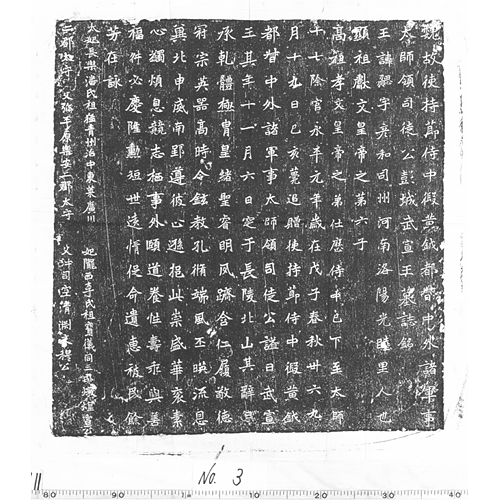 魏故使持節侍中假黃鉞都督中外諸軍事
太師領司徒公彭城武宣王墓誌銘
王諱勰字彥和司州河南洛陽光睦里人也
顯祖獻文皇帝之第六子
高祖孝文皇帝之弟仕歷侍中已下至太師
十七除官永平元年歲在戊子春秋卅六九
月十九日己亥薨追贈使持節侍中假黃鉞
都督中外諸軍事太師領司徒公諡曰武宣
王其年十一月六日窆于長陵北山其辭曰
承乾體極冑皇緒聖睿明夙躋含仁履敬德
冠宗英器高時令鉉教孔脩端風丕映流恩
冀北申威南郢遵彼止遜挹此崇盛華袞素
心蠲煩息競志栖事外頤道養性壽乖與善
福舛必慶隆勳短世遠情促命遺惠被民餘
芳在詠
太妃長樂潘氏祖猛青州治中東萊廣川
二郡太守 父彌平原樂安二郡太守
妃隴西李氏祖寶儀同三司燉煌宣公
父沖司空清淵文穆公
No. 3
80 90 10 20 30 40